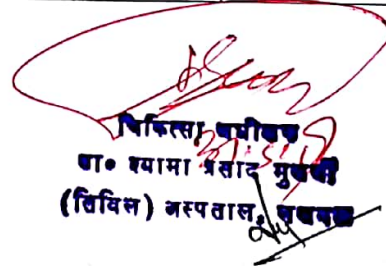 चिकित्सा अधीक्षक
डा० श्यामा प्रसाद मुखर्जी
(सिविल) अस्पताल, लखनऊ